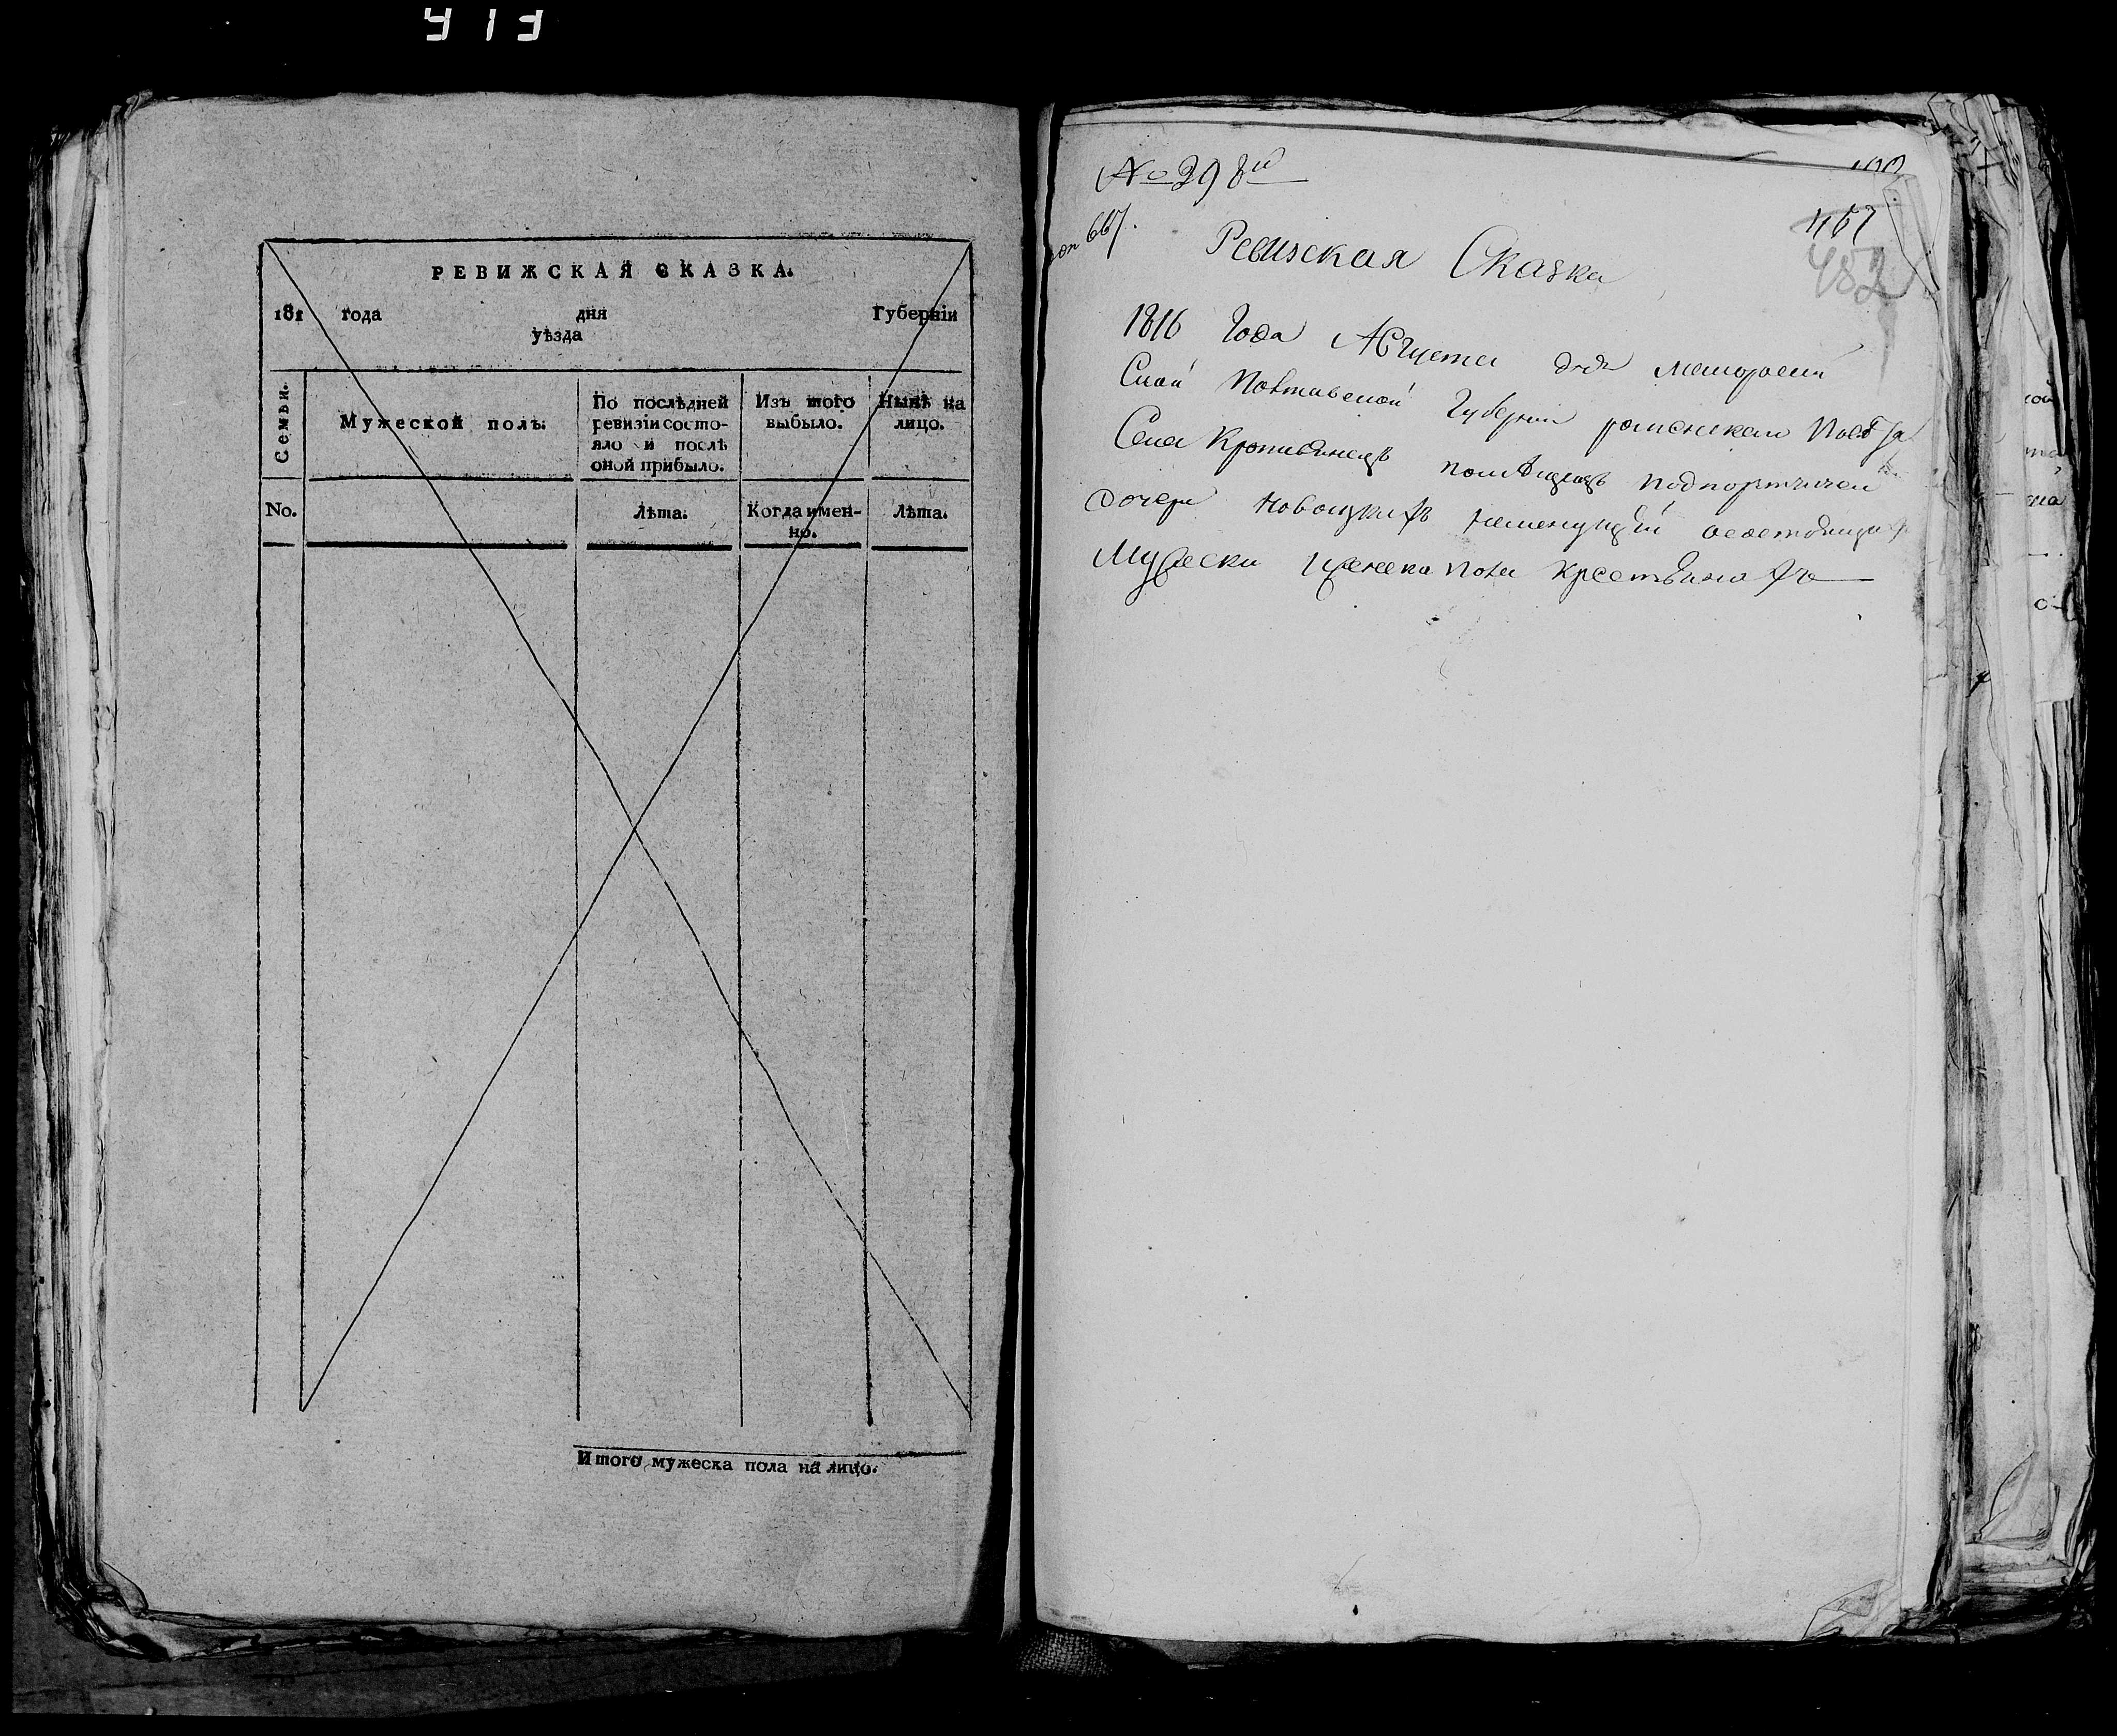 413
РЕВИЖСКАЯ СКАЗКА.
181 года дня Губерніи
уѣзда
Семьи.
Мужеской полъ.
По послѣдней ревизіи состояло и послѣ оной прибыло.
Изъ того выбыло.
Нынѣ на лицо.
No.
Лѣта.
Когда именно.
Лѣта.
Итого мужеска пола на лицо.
№ 298й
667.
457
452
Ревизская Сказка
1816 Года Августа дня
Полтавской Губерніи роменскаго Повѣта
Села Кропивянецъ помѣщицъ подпорутчичей
дочери Новоцкихъ
Мужеска Иженска пола крестьянахъ